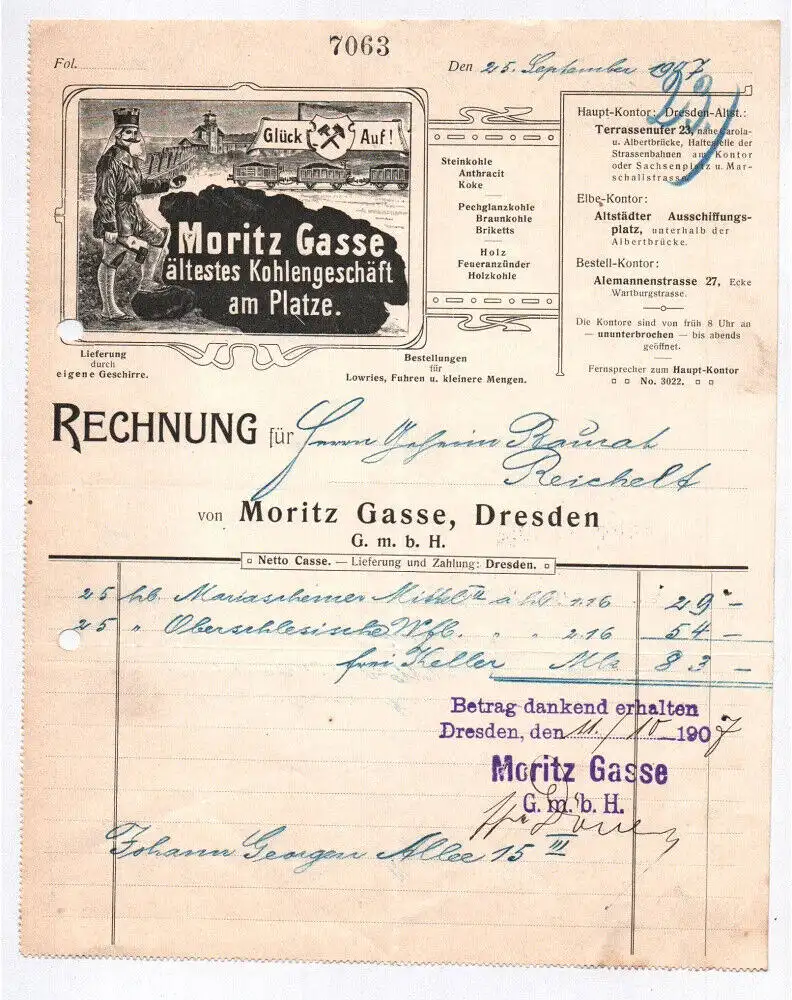 7063
Fol.
Den 25. September 1907
23.)
Glück Auf!
Moritz Gasse
ältestes Kohlengeschäft
am Platze.
Lieferung
durch
eigene Geschirre.
Steinkohle
Anthracit
Koke
Pechglanzkohle
Braunkohle
Briketts
Holz
Feueranzünder
Holzkohle
Bestellungen
für
Lowries, Fuhren u. kleinere Mengen.
Haupt-Kontor: Dresden-Altst.:
Terrassenufer 23, nahe Carola-
u. Albertbrücke, Haltestelle der
Strassenbahnen am Kontor
oder Sachsenplatz u. Mar-
schallstrasse.
Elbe-Kontor:
Altstädter Ausschiffungs-
platz, unterhalb der
Albertbrücke.
Bestell-Kontor:
Alemannenstrasse 27, Ecke
Wartburgstrasse.
Die Kontore sind von früh 8 Uhr an
— ununterbrochen — bis abends
geöffnet.
Fernsprecher zum Haupt-Kontor
No. 3022.
RECHNUNG für Herrn Geheim Baurat
Reichelt
von Moritz Gasse, Dresden
G. m. b. H.
Netto Casse. — Lieferung und Zahlung: Dresden.
25 hl. Mariascheiner Mittel II à hl. 1.16 29 –
25 " Oberschlesische Wfl. " " 2.16 54 –
frei Keller Mk. 83 –
Betrag dankend erhalten
Dresden, den 11./10 1907
Moritz Gasse
G. m. b. H.
Johann Georgen Allee 15 III